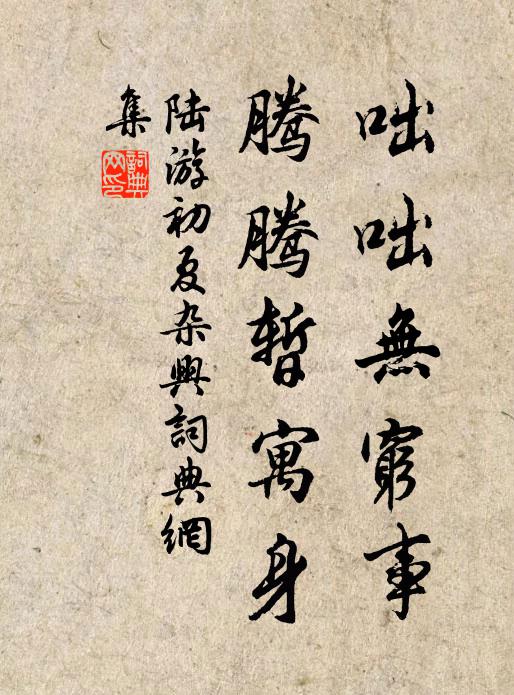 咄咄無窮事
騰騰暫寓身
陆游初夏杂興詞典網
集
詞典
网印